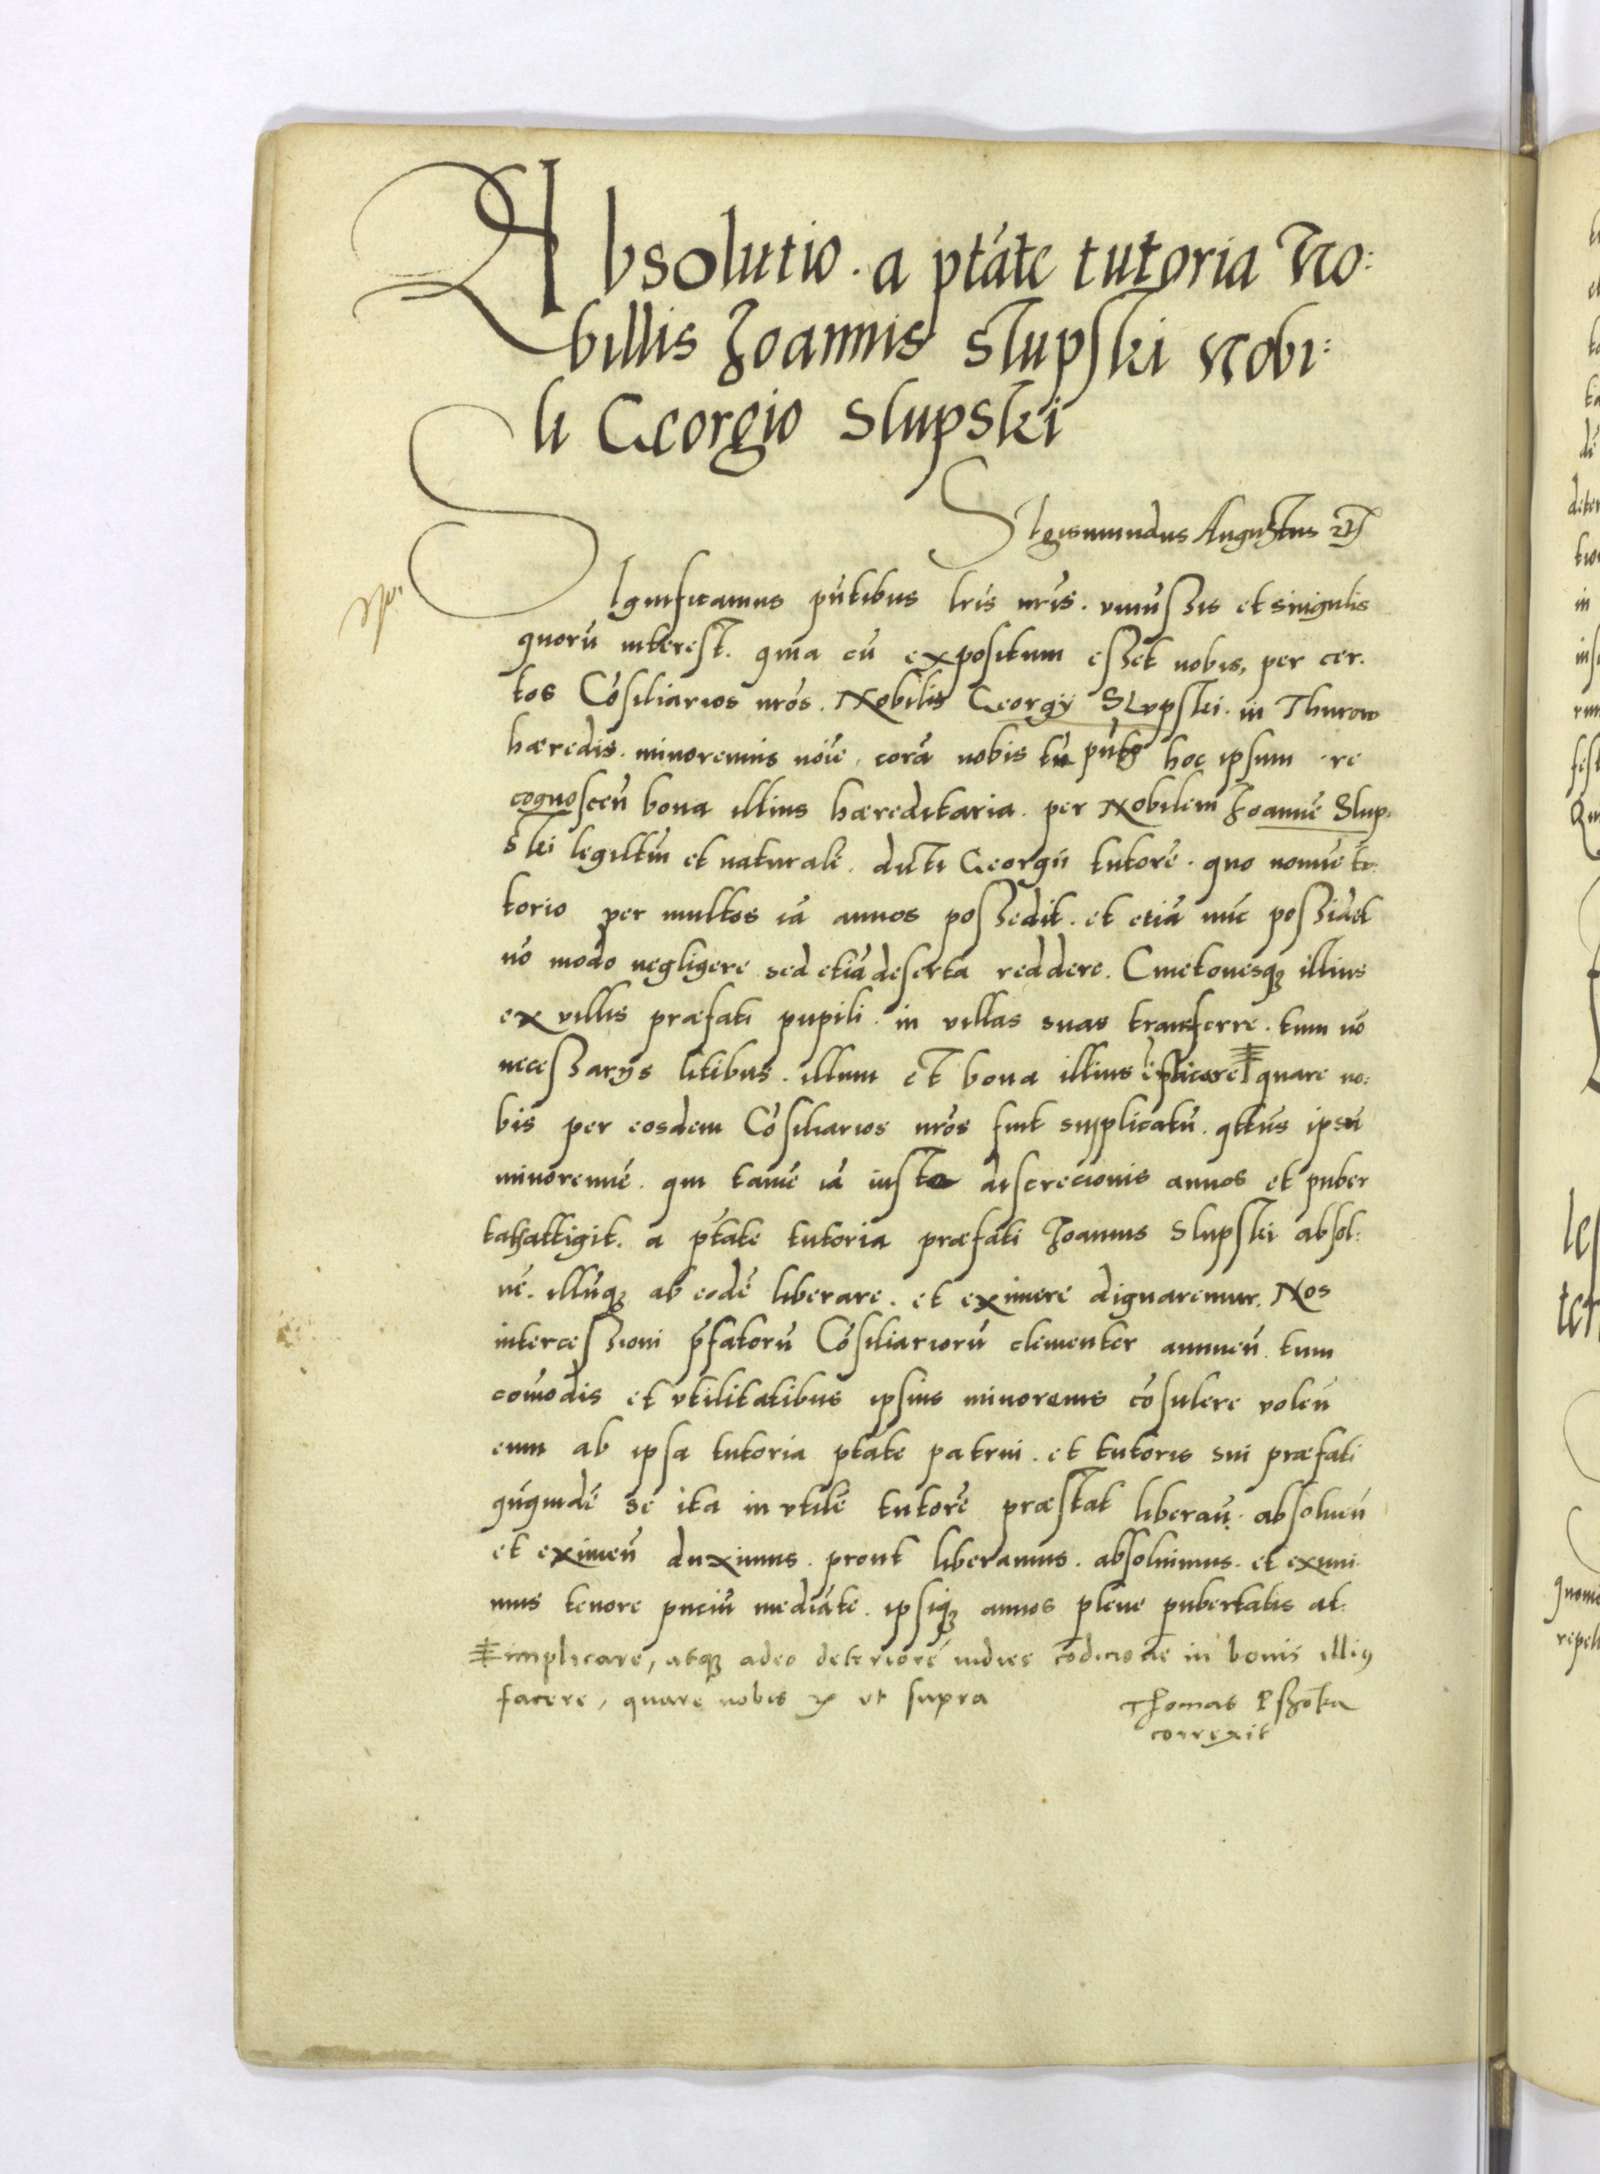 Absolutio · a ptáte tutoria No:
billis Joannis Slupski Nobi:
li Georgio Slupski
Sigismundus Augustus
Significamus pñtibus lris nris. vniüssis et singulis
quorũ interest. quia cũ expositum esset nobis, per cer.
tos Cõsiliarios nros. Nobilis Georgÿ Slvpski. in Thurow
hæredis. minorennis noie, corã nobis tũ hoc ipsum re
cognoscẽn bona illius hæreditaria. per Nobilem Joannẽ Slup.
ski legittĩm et naturalẽ. dicti Georgii tutorẽ. quo nomiẽ tu
torio per multos iã annos possedit. et etiã nũc possidet
nõ modo negligere sed etiã deserta reddere. Cmetonesqȝ illius
ex villis præfati pupili. in villas suas transferre. tum nõ
necessarÿs litibus. illum et bona illius quare no:
bis per eosdem Cõsiliarios nros fuit supplicatũ. qttus ipsũ
minorennẽ. qui tamẽ iã iusta discrecionis annos et puber
attigit. a ptate tutoria præfati Joannis Slupski absol:
vẽ. illũqȝ ab eodẽ liberare. et eximere dignaremur. Nos
intercessioni p̃fatorũ Cõsiliariorũ clementer annuẽn tum
comodis et vtilitatibus ipsius minorenis cõsulere volẽn
eum ab ipsa tutoria ptate patrui. et tutoris sui præfati
qũquidẽ se ita in vtilẽ tutorẽ præstat liberañ. absoluẽn
et eximẽn duximus. prout liberamus. absoluimus. et eximi
mus tenore pnciũ mediãte. ipsiqȝ annos plene pubertatis at:
implicare, atqȝ adeo deteriorẽ indies cõdicionẽ in bonis illiꝰ
facere, quare nobis ut supra
Thomas Pszotka
correxit